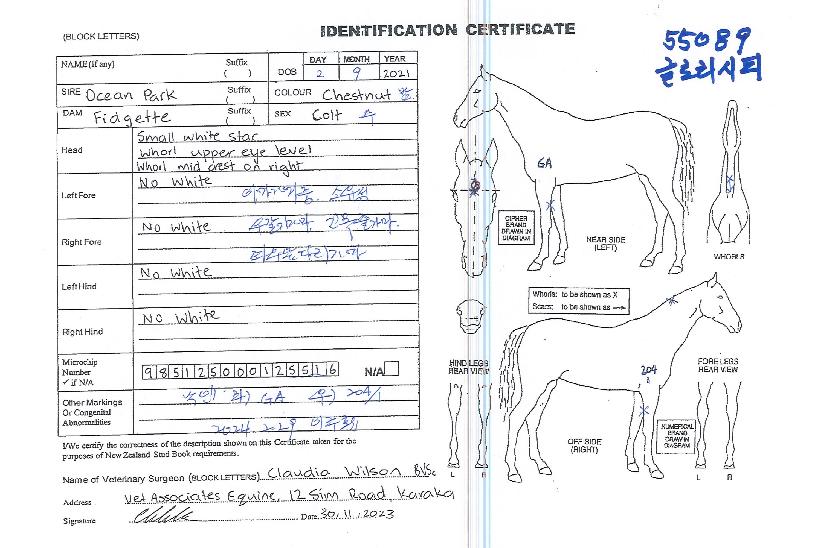 (BLOCK LETTERS)
IDENTIFICATION CERTIFICATE
55089
글로리시티
NAME (if any)
Suffix
( )
DOB
DAY MONTH YEAR
2 9 2021
SIRE Ocean Park
Suffix
( )
COLOUR Chestnut
DAM Fidgette
Suffix
( )
SEX Colt 수
Head
Small white star
Whorl upper eye level
Whorl mid crest on right
Left Fore
No White
Right Fore
No White
Left Hind
No White
Right Hind
No White
Microchip
Number
✓ if N/A
985125000125516
N/A
Other Markings
Or Congenital
Abnormalities
GA 204/1
I/We certify the correctness of the description shown on this Certificate taken for the
purposes of New Zealand Stud Book requirements.
Name of Veterinary Surgeon (BLOCK LETTERS) Claudia Wilson BVSc
Address Vet Associates Equine, 12 Sim Road, Karaka
Signature
Date 30.11.2023
GA
CIPHER
BRAND
DRAWN IN
DIAGRAM
NEAR SIDE
(LEFT)
WHORLS
Whorls: to be shown as X
Scars: to be shown as
HIND LEGS
REAR VIEW
FORE LEGS
REAR VIEW
204
1
OFF SIDE
(RIGHT)
NUMERICAL
BRAND
DRAW IN
DIAGRAM
L R
L R